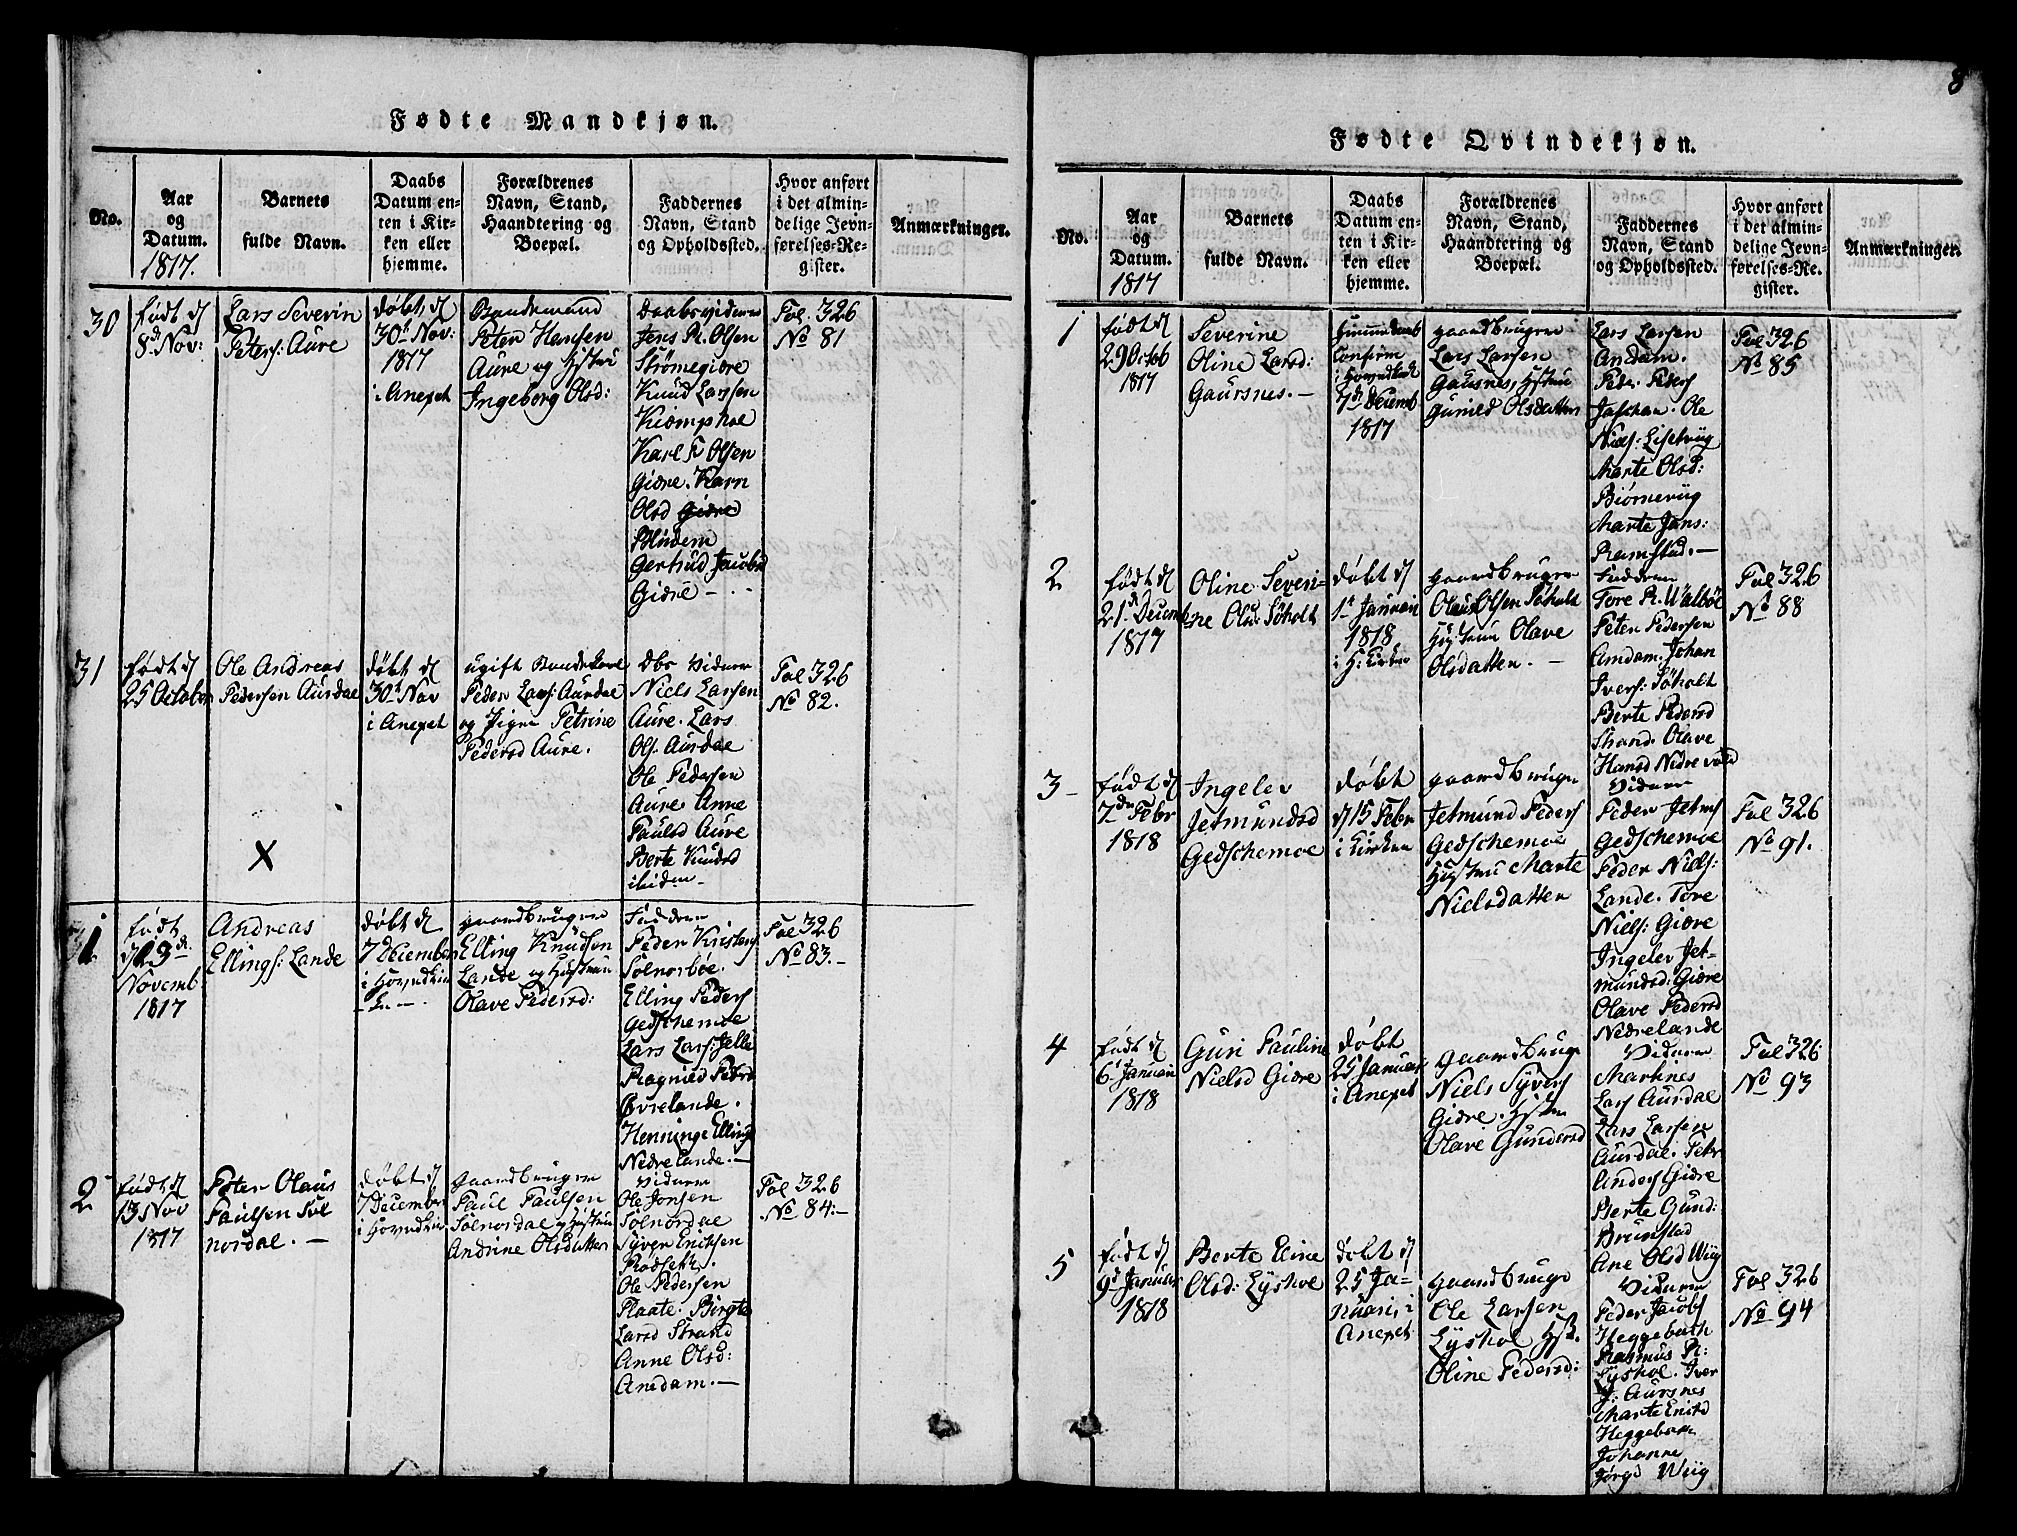 8
Fødte Mandkjøn.
No.
Aar
og
Datum.
1817.
Barnets
fulde Navn.
Daabs
Datum en-
ten i Kir-
ken eller
hjemme.
Forældrenes
Navn, Stand,
Haandtering og
Boepæl.
Faddernes
Navn, Stand
og Opholdssted.
Hvor anført
i det almin-
delige Jevn-
førelses-Re-
gister.
Anmærkninger.
30
født d
8d Nov:
Lars Severin
Peters: Aure
døbt d
30t Nov:
1817
i Anexet
Bondemand
Peter Hansen
Aure og Hustru
Ingeborg Olsd:
Daabsvidner
Jens R. Olsen
Strømegiære
Knud Larsen
Kiømphoe
Karl K Olsen
Giære. Karn
Olsd Giære
Blindem
Gertrud Jacobsd
Giære
Fol. 326
No 81
31
født d
25 October
Ole Andreas
Pedersen Aurdae
døbt d
30t Nov
i Anexet
ugift Bondekarl
Peder Lars: Aurdae
og Pigen Petrine
Pedersd Aure.
Dbs vidner
Niels Larsen
Aure. Lars
Ols. Aurdae
Ole Pedersen
Aure Anne
Paulsd Aure
Berte Knudsd
ibidem
Fol 326
No 82.
X
1
født
d 23d
Novemb
1817
Andreas
Ellings: Lande
døbt d
7 December
i Hovedkir
ken
gaardbruger
Elling Knudsen
Lande og Hustru
Olave Pedersd:
Faddere
Peder Kristens
Solnørbøe.
Elling Peders
Gedschemoe
Lars Lars: Jelle
Ragnild Peders
Øvrelande.
Henninge Ellings
Nedrelande.
Fol 326
No 83.
2
født d
13 Nov
1817
Peter Olaus
Paulsen Sol
nørdal.
døbt d
7 December
i Hovedkir
gaardbruger
Paul Paulsen
Solnørdae og Hustru
Andrine Olsdatter
Vidnere
Ole Jonsen
Solnørdae
Syver Eriksen
Rødsete.
Ole Pedersen
Flaate. Birgte
Larsd Strand
Anne Olsd:
Amdam.
Fol 326
No 84:
Fødte Qvindekjøn.
No.
Aar
og
Datum.
1817
Barnets
fulde Navn.
Daabs
Datum en-
ten i Kir-
ken eller
hjemme.
Forældrenes
Navn, Stand,
Haandtering og
Boepæl.
Faddernes
Navn, Stand
og Opholdssted.
Hvor anført
i det almin-
delige Jevn-
førelses-Re-
gister.
Anmærkninger.
1
født d
29 Octob
1817
Severine
Oline Larsd:
Gaursnes.
Hiemmedøbt
Confirm
i Hovedkirk
7d Decemb
1817
gaardbruger
Lars Larsen
Gausnes, Hustru
Gunild Olsdatter
Lars Larsen
Amdam.
Peder Peders
Ole
Niels:
Marte Olsd:
Biørnevüg
Marte Jans:
Ramstad.
Fol 326
No 85
2
født d
21d Decemb
1817
Oline Severi-
ne Olsd: Søholt
døbt d
1t Januari
1818
i H: Kirken
gaardbruger
Olaus Olsen Søholt
Hustru Olave
Olsdatter.
Faddere
Tore R. Walbøe
Peter Pedersen
Amdam. Johan
Ivers: Søholt
Berte Pedersd
Strand. Olave
Hansd Nedre vold
Fol 326
No 88
3
født d
7de Febr
1818
Ingelev
Jetmundsd
Gedschemoe
døbt
d 15 Febr
i Kirken
gaardbruger
Jetmund Peders
Gedschemoe
Hustru Marte
Nielsdatter
Vidnere
Peder Jetms
Gedschemoe
Peder Niels:
Lande. Tore
Niels: Giære
Ingelev Jet-
mundsd: Giære
Olave Pedersd
Nedrelande
Fol 326
No 91.
4
født d
6t Januari
1818
Guri Pauline
Nielsd Giære
døbt
25 Januar
i Anexet
gaardbruger
Niels Syvers
Giære. Hustru
Olave Gundersd
Vidnere
Marknes
Lars Aursdae
Lars Larsen
Aursdae. Petr
Anders Giære
Berte Gund:
Brunstad
Ane Olsd Wiig
Fol 326
No 93
5
født d
9d Januar
1818
Berte Eline
Olsd: Lyshoe
døbt d
25 Ja-
nuari i
Anexet
gaardbruger
Ole Larsen
Lyshol Hst.
Oline Pedersd:
Vidnere
Peder Jacobs
Heggebakh
Rasmus R:
Lyshol. Iver
J: Aursnes
Marte Ericsd
Heggebakh
Johanne
Jørgd Wiig
Fol 326
No 94